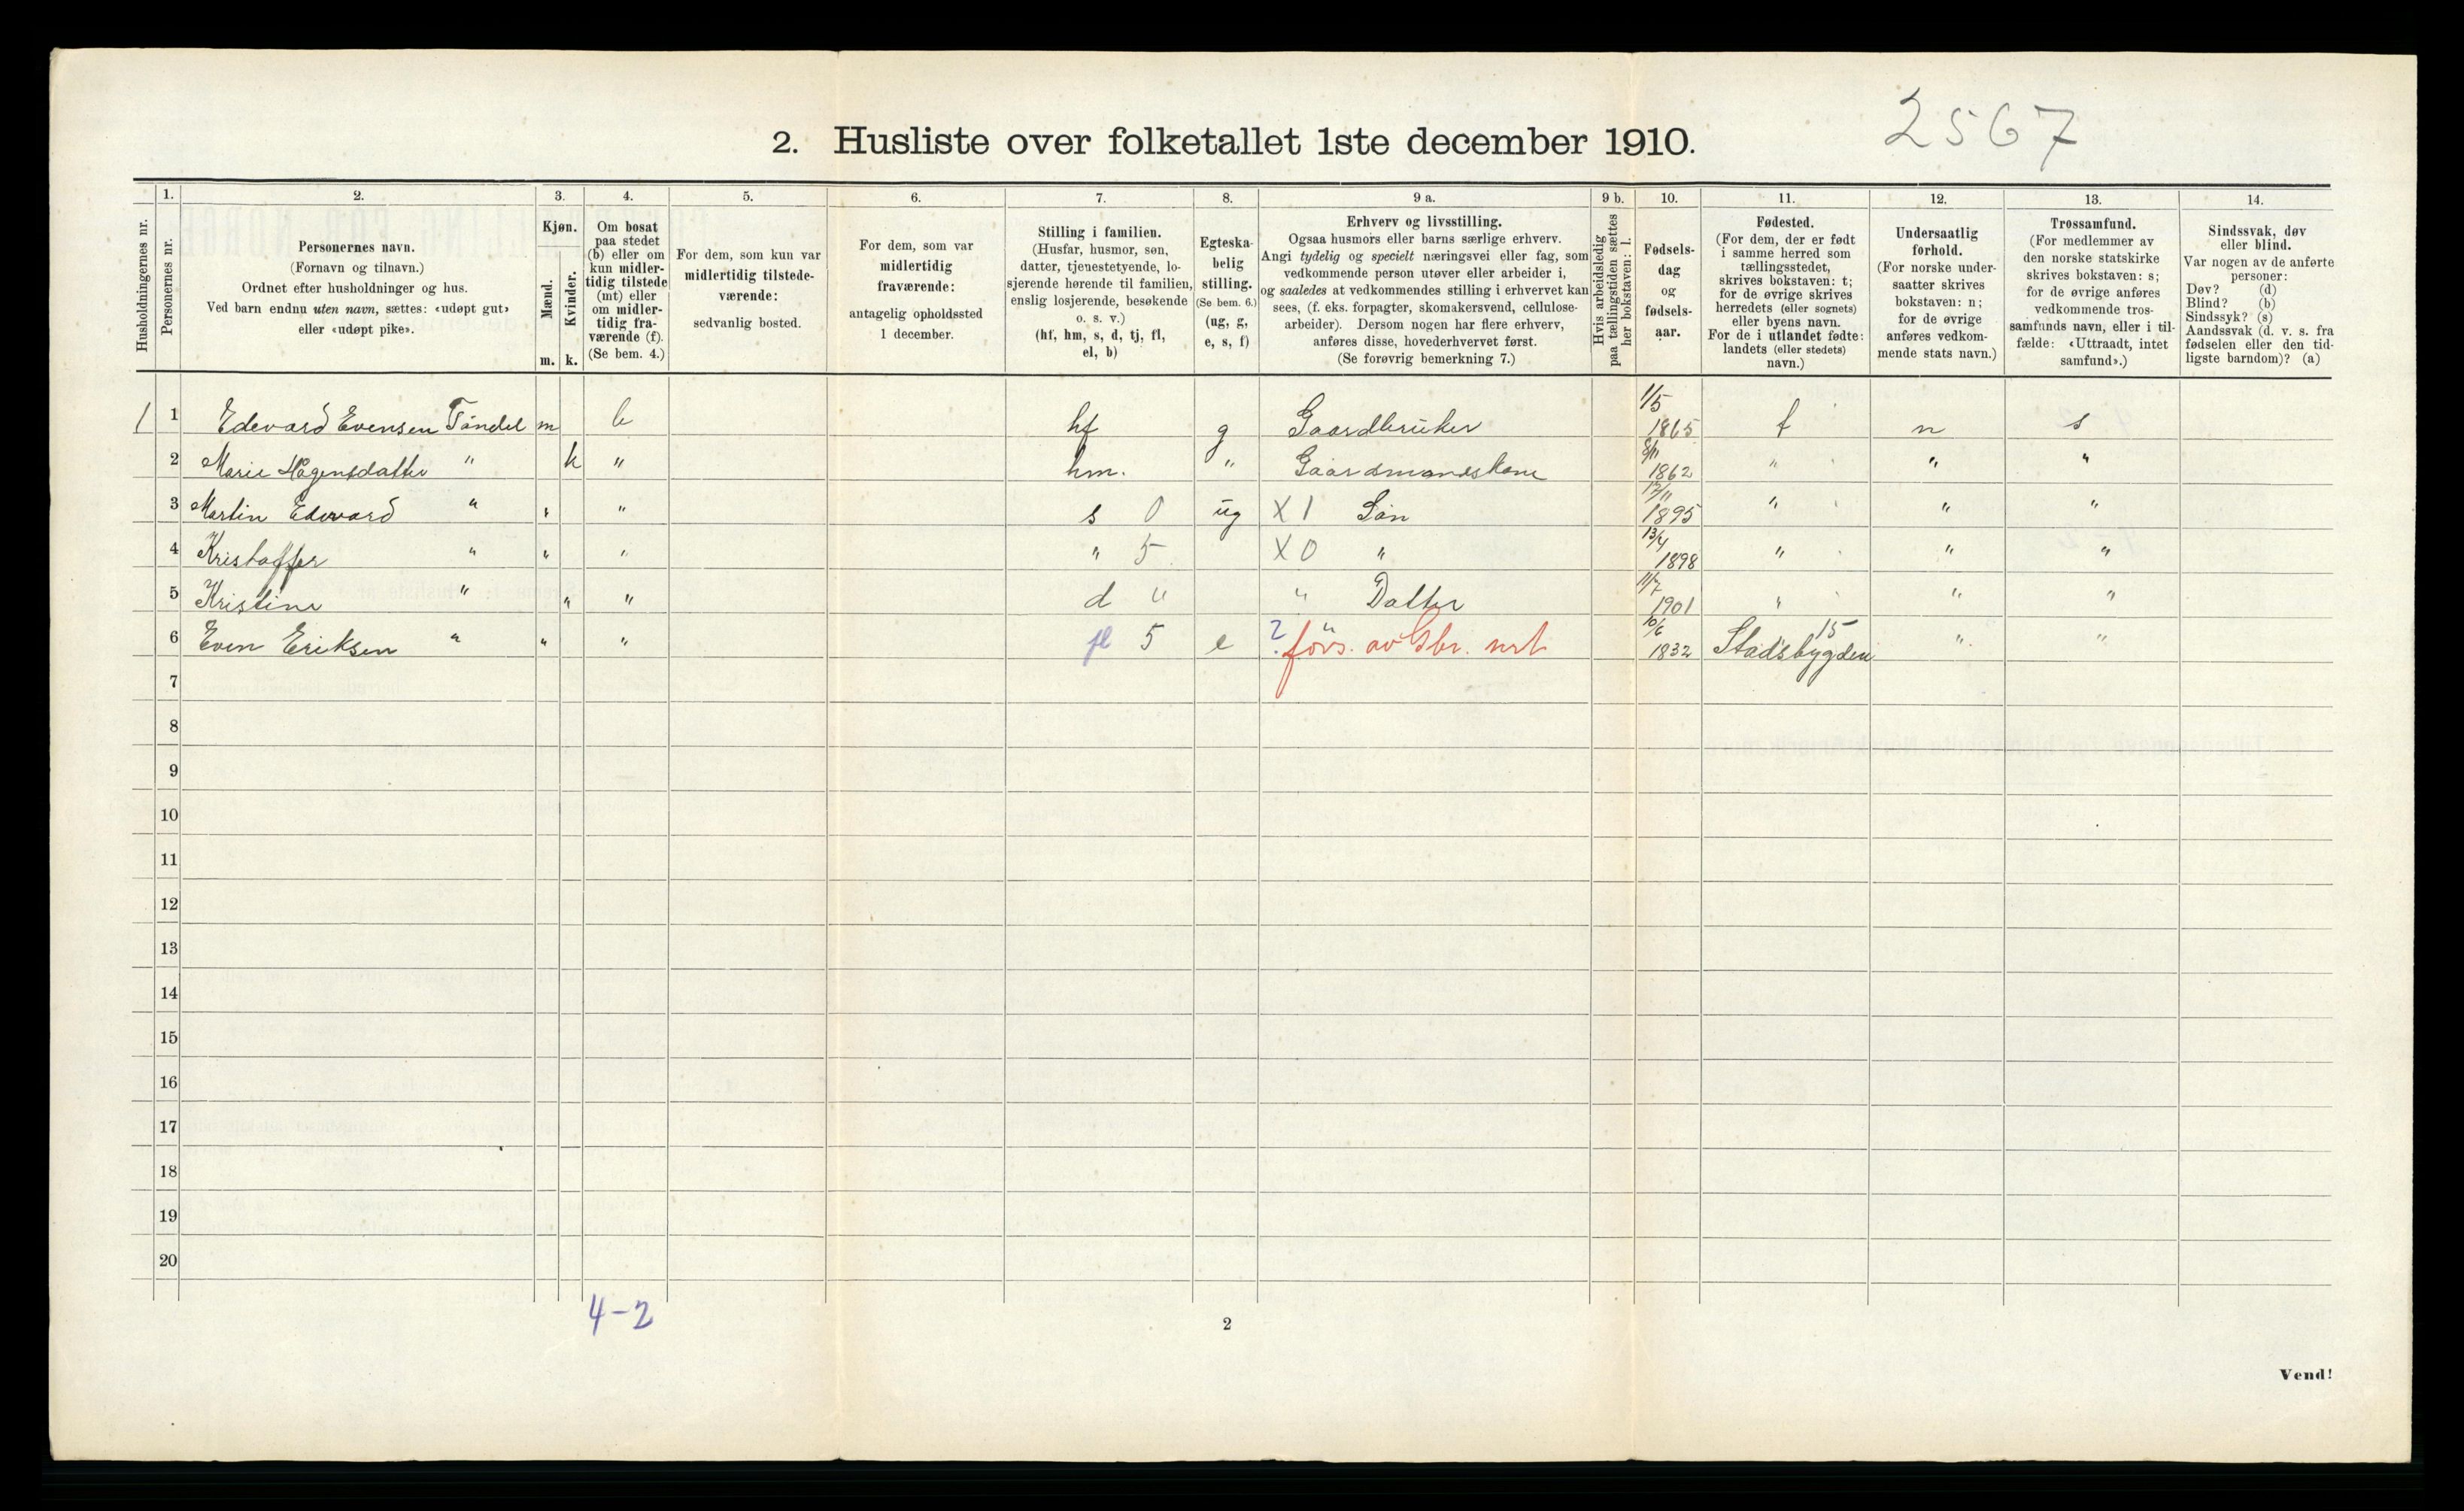 2567
2. Husliste over folketallet 1ste december 1910.
Husholdningernes nr.
1.
Personernes nr.
2.
Personernes navn.
(Fornavn og tilnavn.)
Ordnet efter husholdninger og hus.
Ved barn endnu uten navn, sættes: «udøpt gut»
eller «udøpt pike».
3.
Kjøn.
Mænd.
Kvinder.
m. k.
4.
Om bosat
paa stedet
(b) eller om
kun midler-
tidig tilstede
(mt) eller
om midler-
tidig fra-
værende (f).
(Se bem. 4.)
5.
For dem, som kun var
midlertidig tilstede-
værende:
sedvanlig bosted.
6.
For dem, som var
midlertidig
fraværende:
antagelig opholdssted
1 december.
7.
Stilling i familien.
(Husfar, husmor, søn,
datter, tjenestetyende, lo-
sjerende hørende til familien,
enslig losjerende, besøkende
o. s. v.)
(hf, hm, s, d, tj, fl,
el, b)
8.
Egteska-
belig
stilling.
(Se bem. 6.)
(ug, g,
e, s, f)
9 a.
Erhverv og livsstilling.
Ogsaa husmors eller barns særlige erhverv.
Angi tydelig og specielt næringsvei eller fag, som
vedkommende person utøver eller arbeider i,
og saaledes at vedkommendes stilling i erhvervet kan
sees, (f. eks. forpagter, skomakersvend, cellulose-
arbeider). Dersom nogen har flere erhverv,
anføres disse, hovederhvervet først.
(Se forøvrig bemerkning 7.)
9 b.
Hvis arbeidsledig
paa tællingstiden sættes
her bokstaven: l.
10.
Fødsels-
dag
og
fødsels-
aar.
11.
Fødested.
(For dem, der er født
i samme herred som
tællingsstedet,
skrives bokstaven: t;
for de øvrige skrives
herredets (eller sognets)
eller byens navn.
For de i utlandet fødte:
landets (eller stedets)
navn.)
12.
Undersaatlig
forhold.
(For norske under-
saatter skrives
bokstaven: n;
for de øvrige
anføres vedkom-
mende stats navn.)
13.
Trossamfund.
(For medlemmer av
den norske statskirke
skrives bokstaven: s;
for de øvrige anføres
vedkommende tros-
samfunds navn, eller i til-
fælde: «Uttraadt, intet
samfund».)
14.
Sindssvak, døv
eller blind.
Var nogen av de anførte
personer:
Døv? (d)
Blind? (b)
Sindssyk? (s)
Aandssvak (d. v. s. fra
fødselen eller den tid-
ligste barndom)? (a)
1 1 Edevard Evensen Tøndel m b hf g Gaardbruker 1/5 1865 t n s
2 Marie Hågensdatter " k " hm. " Gaardmandskone 8/11 1862 " " "
3 Martin Edevard " " " s 0 ug X 1 Søn 17/11 1895 " " "
4 Kristoffer " " " " 5 X 0 " 13/4 1898 " " "
5 Kristine " " " d " " Datter 11/7 1901 " " "
6 Even Eriksen " " " fl 5 e ? " førs. av Gbr. 10/6 1832 Stadsbygden 15 " "
7
8
9
10
11
12
13
14
15
16
17
18
19
20
4-2
2
Vend!